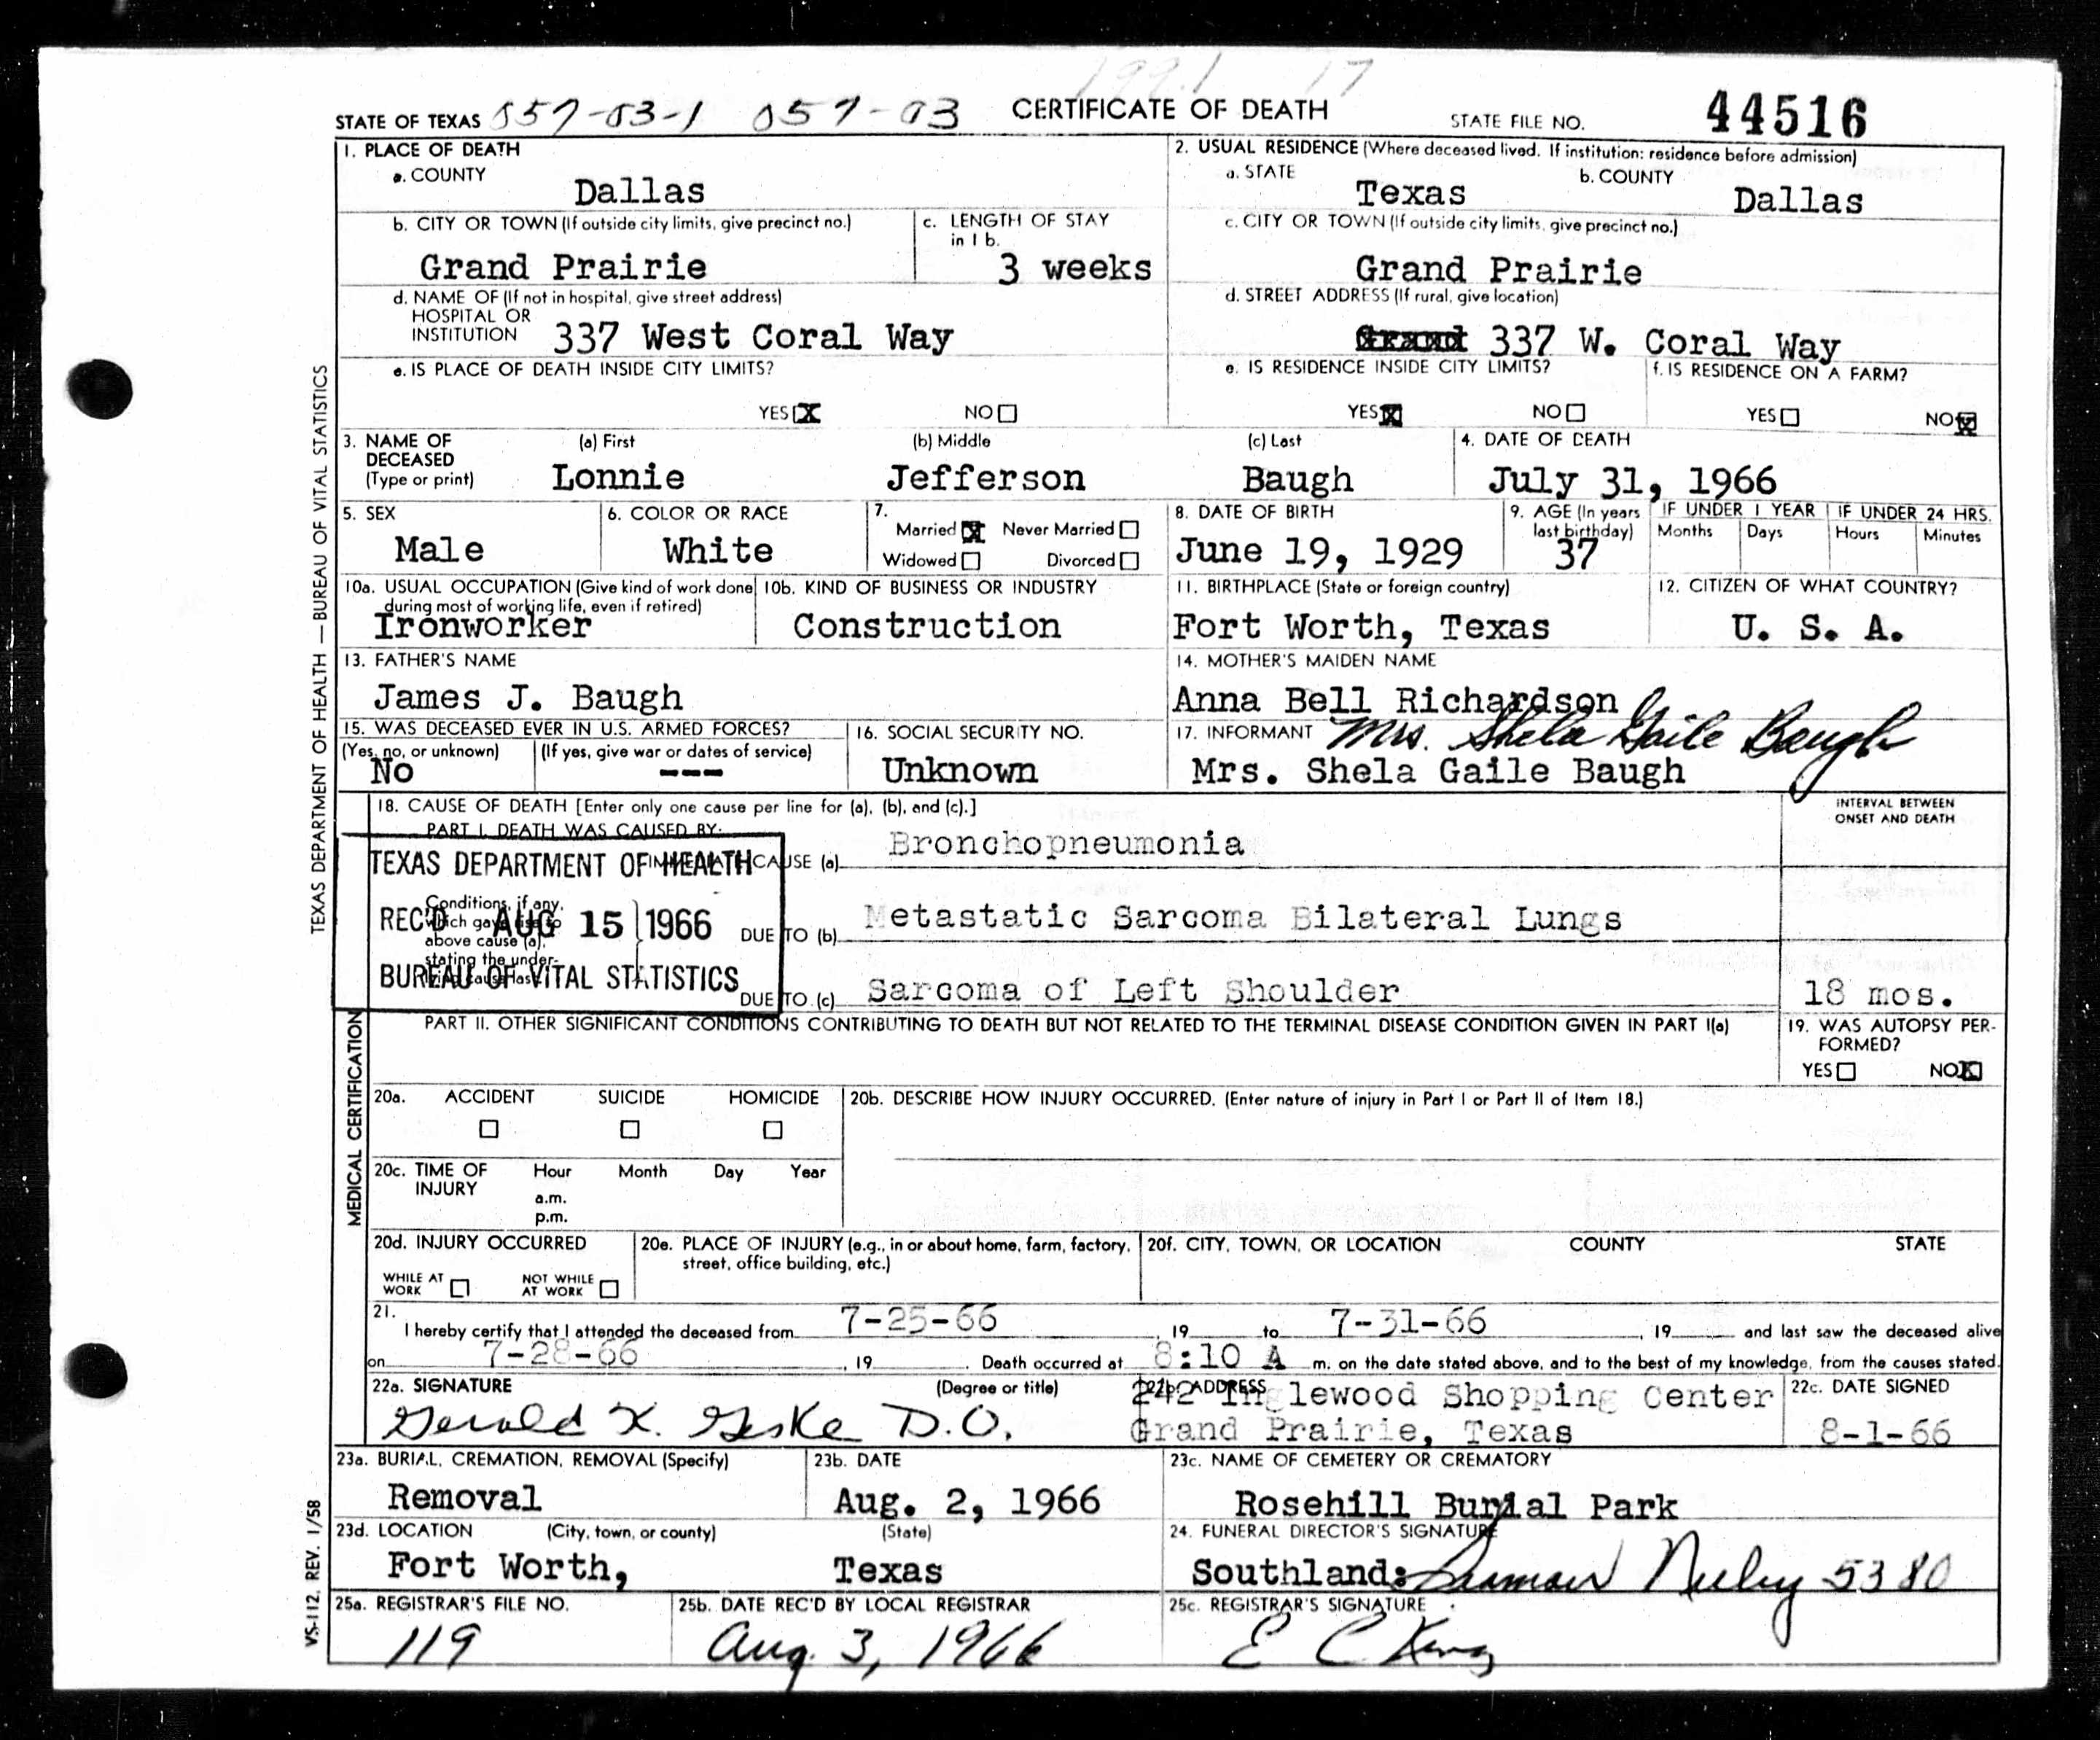 STATE OF TEXAS 057-03-1 057-03 CERTIFICATE OF DEATH STATE FILE NO. 44516
1. PLACE OF DEATH
a. COUNTY
Dallas
2. USUAL RESIDENCE (Where deceased lived. If institution: residence before admission)
a. STATE
Texas
b. COUNTY
Dallas
b. CITY OR TOWN (If outside city limits, give precinct no.)
Grand Prairie
c. LENGTH OF STAY
in 1 b.
3 weeks
c. CITY OR TOWN (If outside city limits, give precinct no.)
Grand Prairie
d. NAME OF (If not in hospital, give street address)
HOSPITAL OR
INSTITUTION 337 West Coral Way
d. STREET ADDRESS (If rural, give location)
337 W. Coral Way
e. IS PLACE OF DEATH INSIDE CITY LIMITS?
YES X NO
e. IS RESIDENCE INSIDE CITY LIMITS?
YES X NO
f. IS RESIDENCE ON A FARM?
YES NO X
3. NAME OF
DECEASED
(Type or print)
(a) First
Lonnie
(b) Middle
Jefferson
(c) Last
Baugh
4. DATE OF DEATH
July 31, 1966
5. SEX
Male
6. COLOR OR RACE
White
7.
Married X Never Married
Widowed Divorced
8. DATE OF BIRTH
June 19, 1929
9. AGE (In years
last birthday)
37
IF UNDER 1 YEAR
Months Days
IF UNDER 24 HRS.
Hours Minutes
10a. USUAL OCCUPATION (Give kind of work done
during most of working life, even if retired)
Ironworker
10b. KIND OF BUSINESS OR INDUSTRY
Construction
11. BIRTHPLACE (State or foreign country)
Fort Worth, Texas
12. CITIZEN OF WHAT COUNTRY?
U. S. A.
13. FATHER'S NAME
James J. Baugh
14. MOTHER'S MAIDEN NAME
Anna Bell Richardson
15. WAS DECEASED EVER IN U.S. ARMED FORCES?
(Yes, no, or unknown) (If yes, give war or dates of service)
No ---
16. SOCIAL SECURITY NO.
Unknown
17. INFORMANT Mrs. Shela Gaile Baugh
Mrs. Shela Gaile Baugh
TEXAS DEPARTMENT OF HEALTH — BUREAU OF VITAL STATISTICS
MEDICAL CERTIFICATION
18. CAUSE OF DEATH [Enter only one cause per line for (a), (b), and (c).]
INTERVAL BETWEEN
ONSET AND DEATH
PART I. DEATH WAS CAUSED BY:
IMMEDIATE CAUSE (a) Bronchopneumonia
Conditions, if any,
which gave rise to
above cause (a),
stating the under-
lying cause last.
DUE TO (b) Metastatic Sarcoma Bilateral Lungs
DUE TO (c) Sarcoma of Left Shoulder
18 mos.
TEXAS DEPARTMENT OF HEALTH
REC'D AUG 15 1966
BUREAU OF VITAL STATISTICS
PART II. OTHER SIGNIFICANT CONDITIONS CONTRIBUTING TO DEATH BUT NOT RELATED TO THE TERMINAL DISEASE CONDITION GIVEN IN PART I(a)
19. WAS AUTOPSY PER-
FORMED?
YES NO X
20a. ACCIDENT SUICIDE HOMICIDE
20b. DESCRIBE HOW INJURY OCCURRED. (Enter nature of injury in Part I or Part II of Item 18.)
20c. TIME OF
INJURY
Hour Month Day Year
a.m.
p.m.
20d. INJURY OCCURRED
WHILE AT
WORK
NOT WHILE
AT WORK
20e. PLACE OF INJURY (e.g., in or about home, farm, factory,
street, office building, etc.)
20f. CITY, TOWN, OR LOCATION COUNTY STATE
21.
I hereby certify that I attended the deceased from 7-25-66, 19 to 7-31-66, 19 and last saw the deceased alive
on 7-28-66, 19. Death occurred at 8:10 A m. on the date stated above, and to the best of my knowledge, from the causes stated.
22a. SIGNATURE (Degree or title)
Gerald K. Geske D.O.
22b. ADDRESS
242 Inglewood Shopping Center
Grand Prairie, Texas
22c. DATE SIGNED
8-1-66
23a. BURIAL, CREMATION, REMOVAL (Specify)
Removal
23b. DATE
Aug. 2, 1966
23c. NAME OF CEMETERY OR CREMATORY
Rosehill Burial Park
23d. LOCATION (City, town, or county) (State)
Fort Worth, Texas
24. FUNERAL DIRECTOR'S SIGNATURE
Southland: 5380
25a. REGISTRAR'S FILE NO.
119
25b. DATE REC'D BY LOCAL REGISTRAR
Aug. 3, 1966
25c. REGISTRAR'S SIGNATURE
E C King
VS-112, REV. 1/58